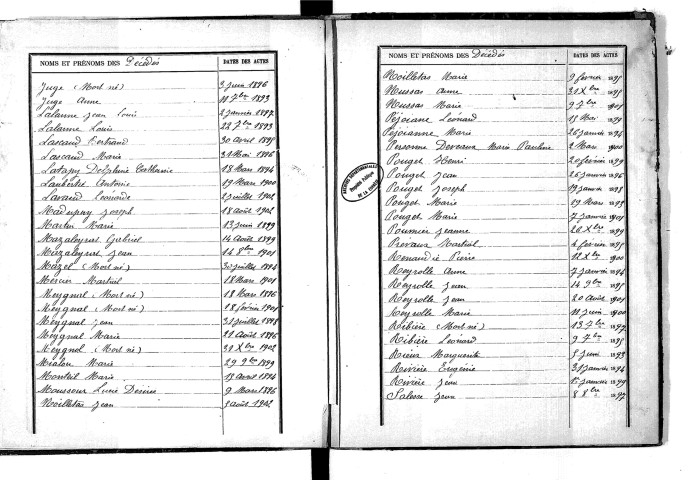 NOMS ET PRÉNOMS DES Décédés DATES DES ACTES
Juge (Mort né) 3 juin 1896
Juge Anne 11 7bre 1893
Lalanne Jean Louis 2 janvier 1897
Lalanne Louis 22 7bre 1893
Lascaud Bertrand 30 avril 1895
Lascaud Marie 31 Mai 1896
Latapy Delphine Catherine 18 Mars 1894
Laubertie Antonie 19 Mars 1900
Lavaud Léonarde 2 juillet 1902
Madupuy Joseph 18 août 1902
Martin Marie 13 juin 1899
Mazaleyrat Gabriel 14 Août 1899
Mazaleyrat Jean 14 8bre 1901
Mazel (Mort né) 30 juillet 1894
Mercier Martial 18 Mars 1901
Meygnal (Mort né) 18 Mars 1896
Meygnal (Mort né) 18 février 1901
Meygnal Jean 31 juillet 1898
Meygnal Marie 21 Août 1896
Meygnal (Mort né) 30 Xbre 1902
Mialon Marie 29 9bre 1899
Monteil Marie 18 Avril 1894
Moussour Lucie Désirée 9 Mars 1896
Noilletas Jean 5 août 1902
NOMS ET PRÉNOMS DES Décédés DATES DES ACTES
Noilletas Marie 9 février 1895
Nussas Anne 31 Xbre 1895
Nussas Marie 9 7bre 1901
Péjoianne Léonard 15 Mai 1899
Péjoianne Marie 26 janvier 1894
Personne Deveaux Marie Pauline 2 Mars 1900
Pouget Henri 20 février 1899
Pouget Jean 26 janvier 1896
Pouget Joseph 19 janvier 1898
Pouget Marie 19 Mars 1898
Pouget Marie 7 janvier 1901
Poumier Jeanne 20 Xbre 1899
Prévaux Martial 4 février 1895
Renaudie Pierre 12 Xbre 1900
Reyrolle Anne 7 janvier 1894
Reyrolle Jean 14 9bre 1895
Reyrolle Jean 20 Août 1901
Reyrolle Marie 11 juin 1900
Ribière (Mort né) 13 7bre 1897
Ribière Léonard 9 7bre 1895
Rieux Marguerite 5 juin 1893
Rivière Eugénie 31 janvier 1894
Rivière Jean 15 janvier 1899
Salesse Jean 8 8bre 1897